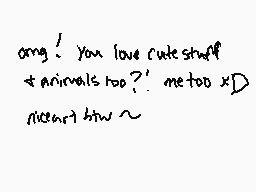 omg! you love cute stuff
& animals too?! me too xD
nice art btw ~